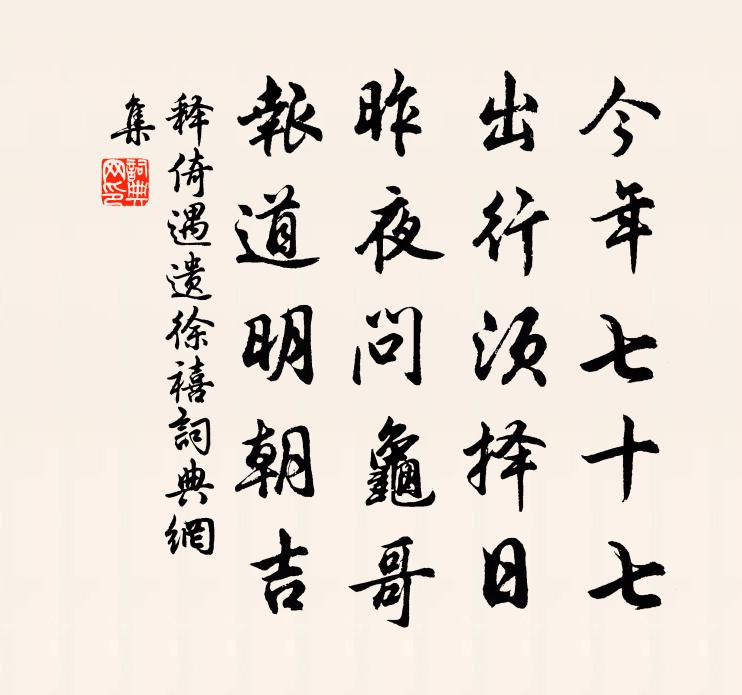 今年七十七
出行须择日
昨夜问龜哥
報道明朝吉
释倚遇遗徐禧詞典網
集
詞典
网印